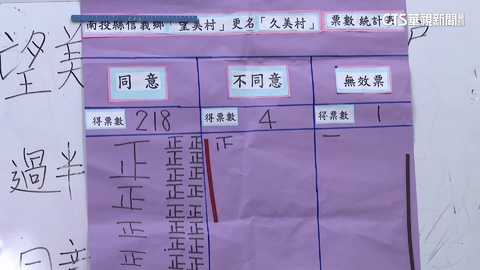 CTS華視新聞
南投縣信義鄉「望美村」更名「久美村」票數統計
望美
同意
不同意
無效票
得票數 218
得票數 4
得票數 1
過半
正 正 正 正 一
正 正 正
正 正 正
正 正 正
正 正 正
同意